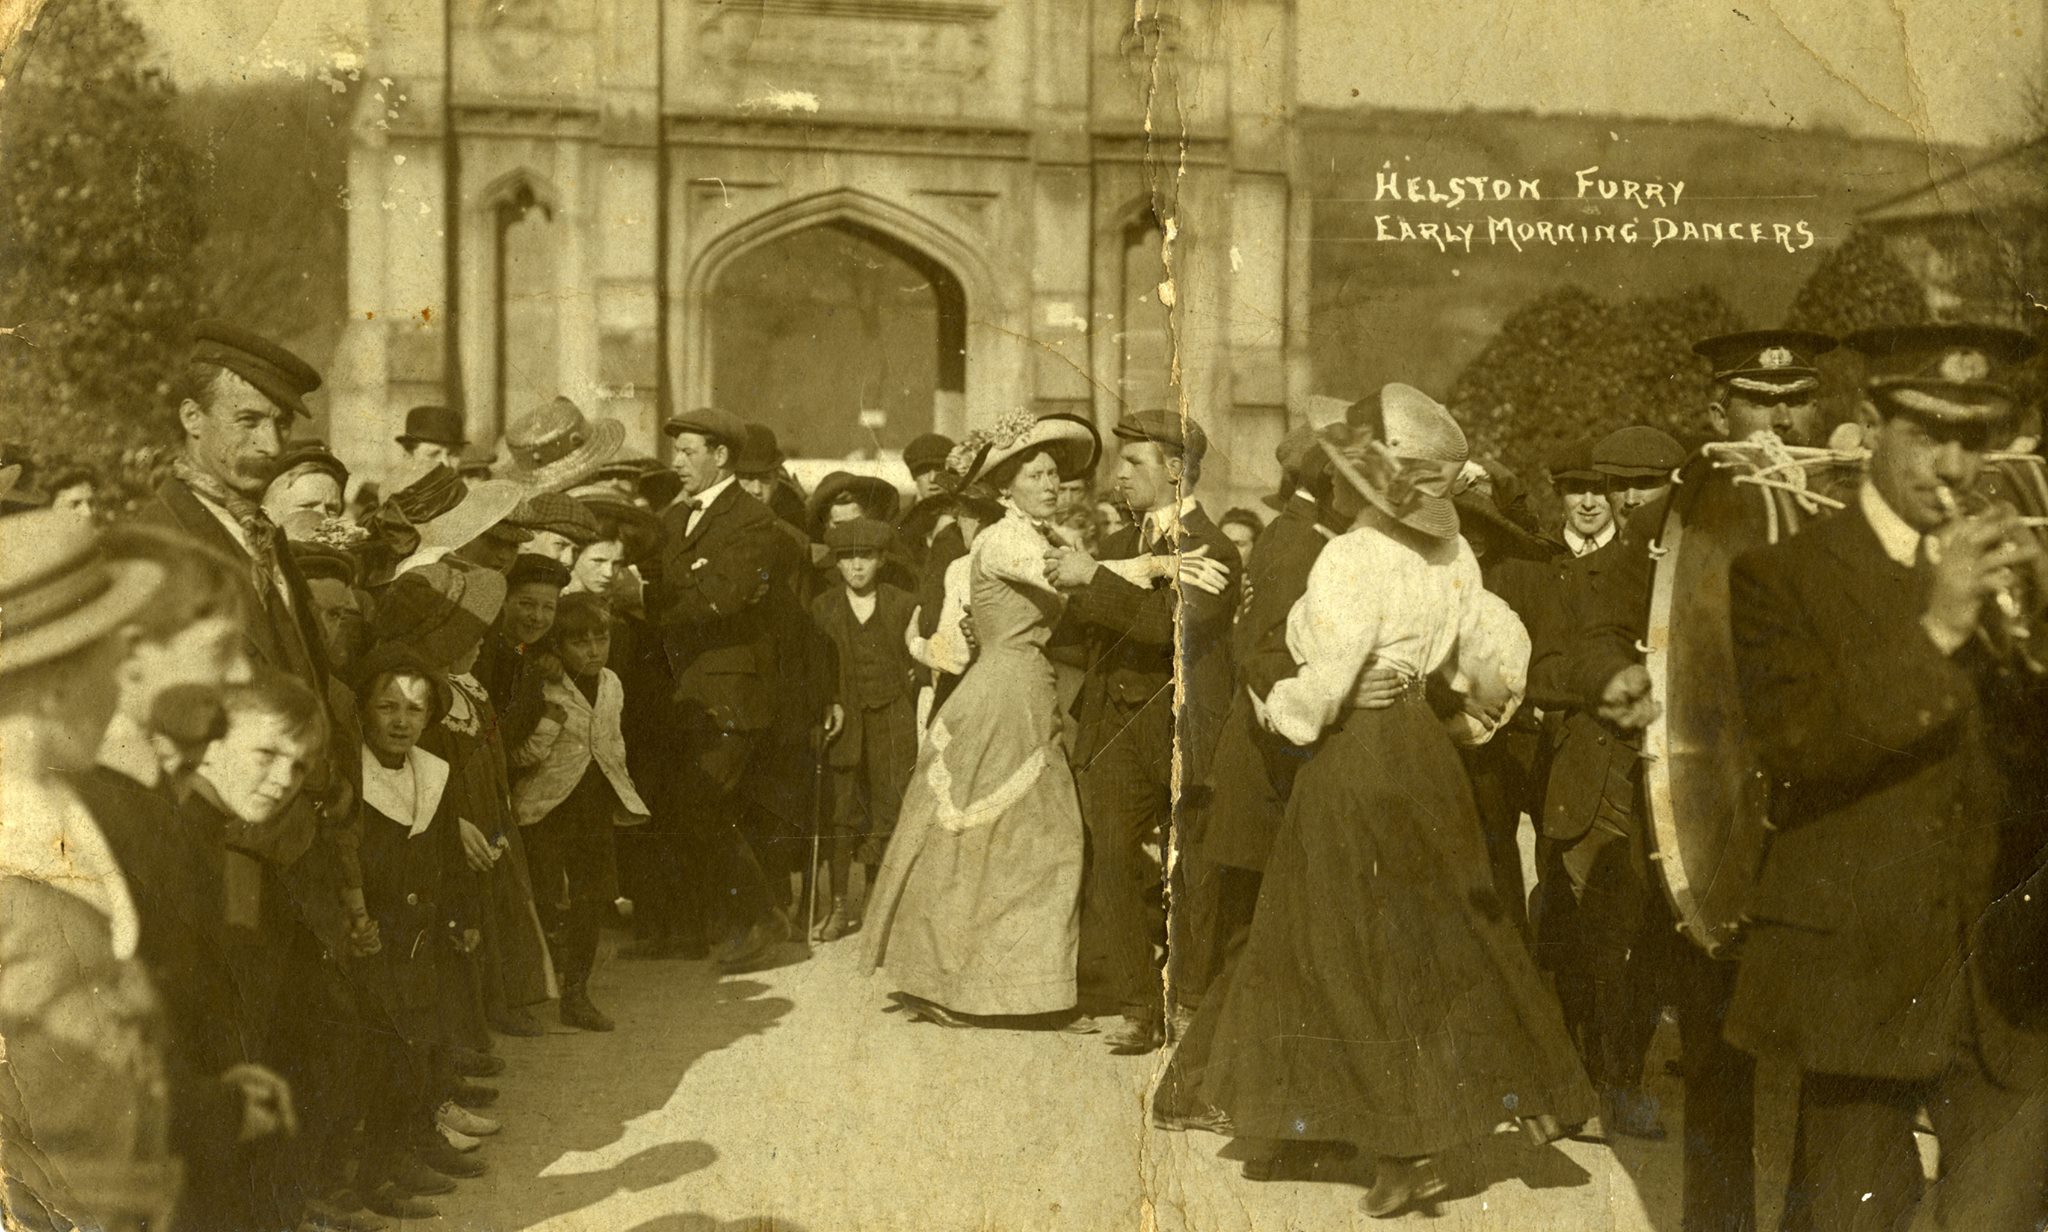 HELSTON FURRY
EARLY MORNING DANCERS